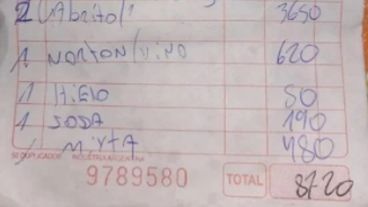 2 Cabrito 3650
1 NORTON VINO 620
1 HIELO 50
1 SODA 190
1 MirTA 480
SEDUPLICADOR INDUSTRIA ARGENTINA
9789580 TOTAL 8720